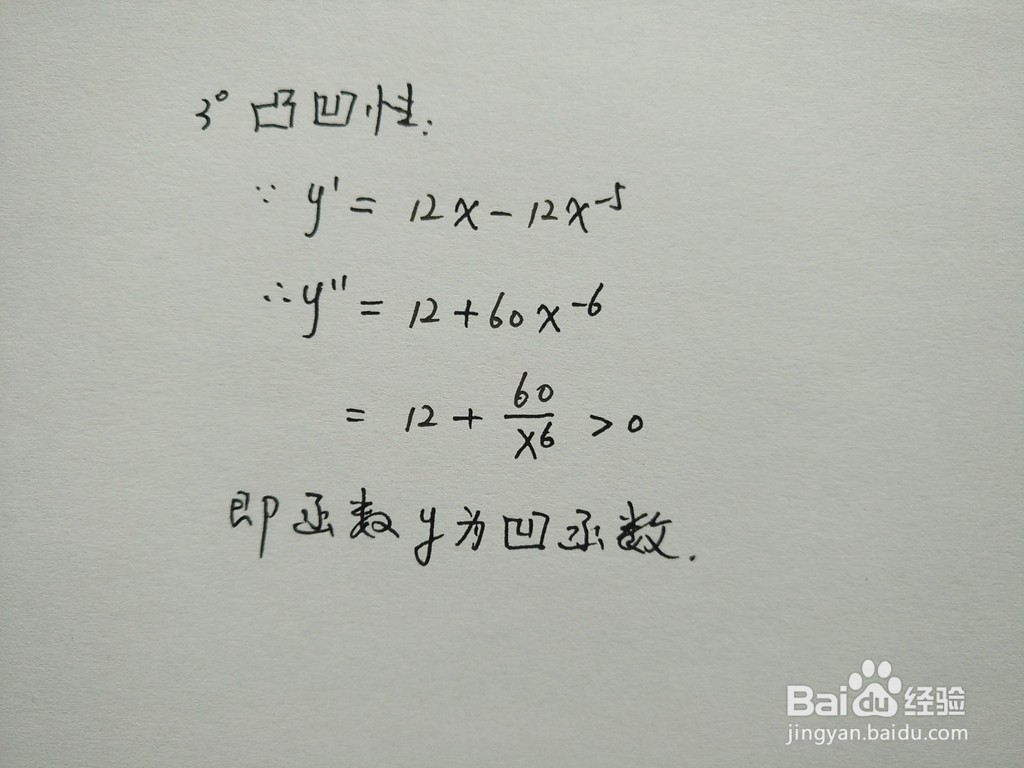 3° 凸凹性:
∵ y' = 12x - 12x⁻⁵
∴ y'' = 12 + 60x⁻⁶
= 12 + 60/x⁶ > 0
即函数y为凹函数.
Baidu经验
jingyan.baidu.com